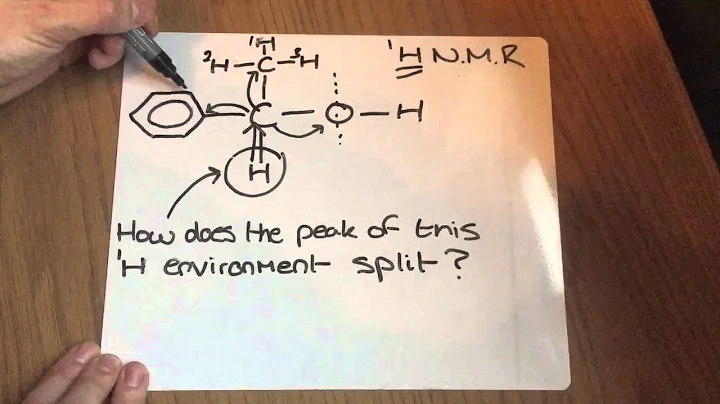 ¹H N.M.R
¹H
²H C ³H
C O H
H
How does the peak of this
¹H environment split?